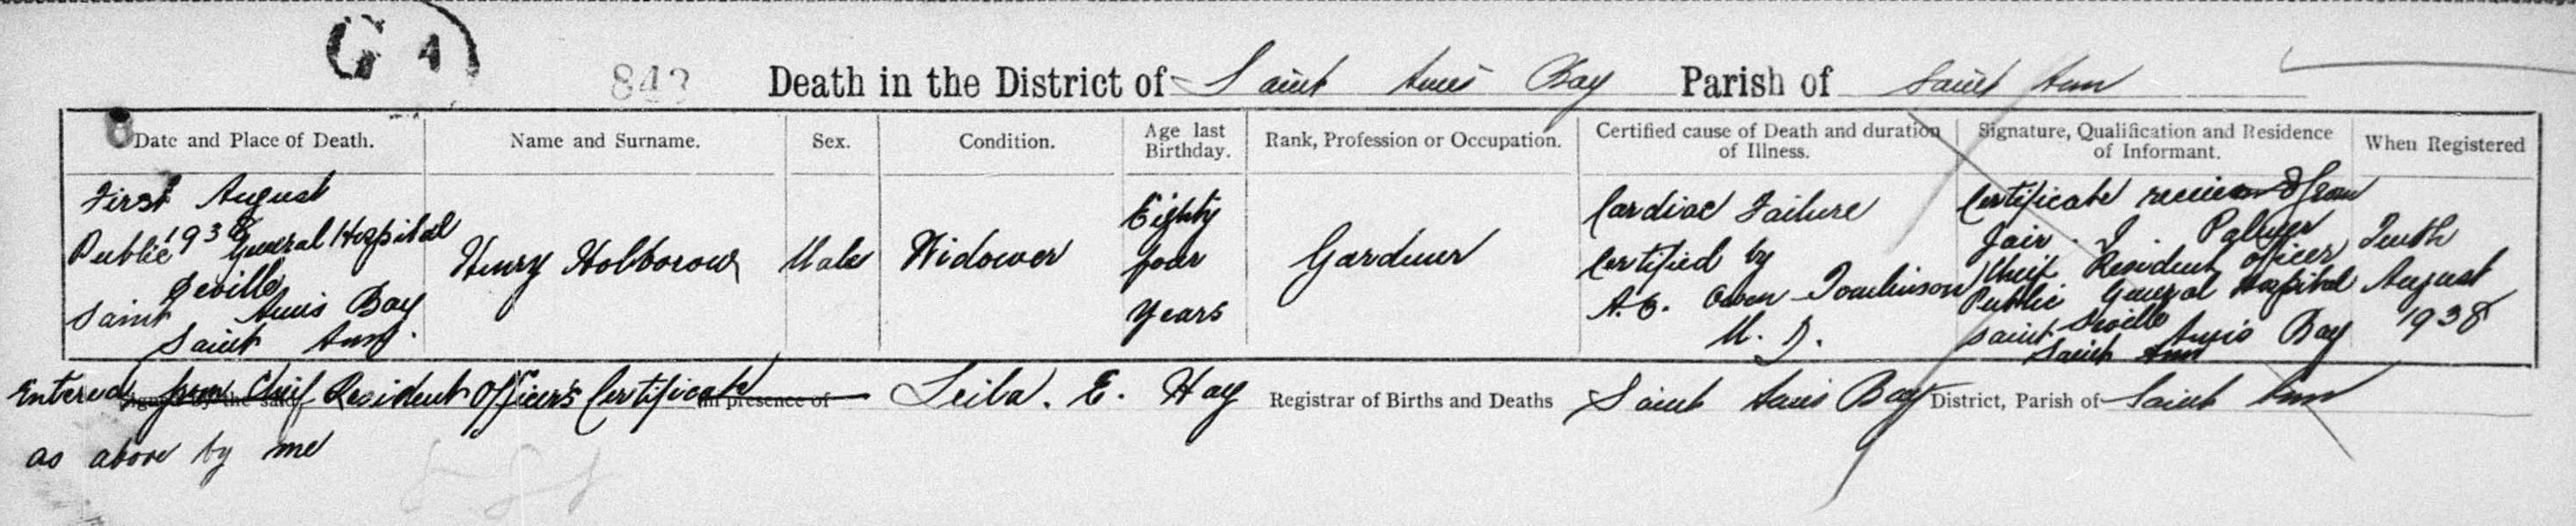 G 4
842
Death in the District of Saint Ann's Bay Parish of Saint Ann
8
Date and Place of Death.
Name and Surname.
Sex.
Condition.
Age last
Birthday.
Rank, Profession or Occupation.
Certified cause of Death and duration
of Illness.
Signature, Qualification and Residence
of Informant.
When Registered
First August
1938
Public General Hospital
Seville
Saint Ann's Bay
Saint Ann.
Henry Holborow
Male
Widower
Eighty
four
Years
Gardener
Cardiac Failure
Certified by
A. E. Owen Tomlinson
M. D.
Certificate received from
J. Palmer
Chief Resident Officer
Public General Hospital
Seville
Saint Ann's Bay
Saint Ann
Tenth
August
1938
Entered from Chief Resident Officer's Certificate Leila. E. Hay Registrar of Births and Deaths Saint Ann's Bay District, Parish of Saint Ann
Signed by the said in presence of
as above by me